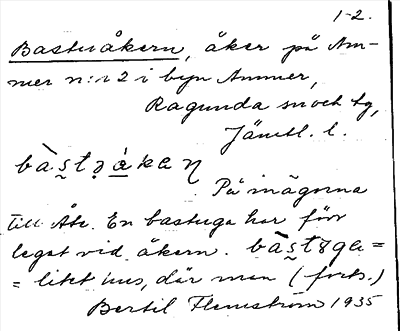 1-2.
Bastuåkern, åker på Am-
mer n:r 2 i byn Ammer,
Ragunda sn och tg,
Jämtl. l.
På inägorna
till Åbc. En bastuga har förr
legat vid åkern.
= likt hus, där man (forts.)
Bertil Flemström 1935